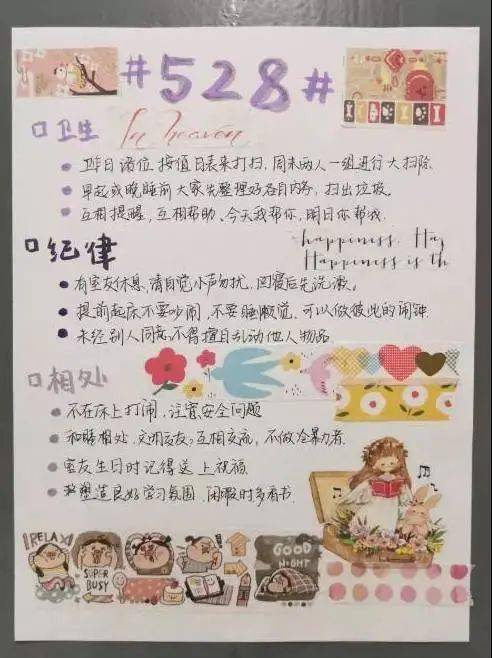 #528#
卫生
In heaven
卫生日请按值日表来打扫,周末两人一组进行大扫除
早起或晚睡前大家先整理好各自内务,扫出垃圾
互相提醒,互相帮助、今天我帮你,明日你帮我
happiness. Ha
Happiness is th
纪律
有室友休息,请自觉小声勿扰,回寝后先洗漱。
提前起床不要吵闹,不要睡懒觉,可以做彼此的闹钟
未经别人同意,不得擅自乱动他人物品
相处
不在床上打闹,注意安全问题
和睦相处,文明交友,互相交流,不做冷暴力者.
室友生日时记得送上祝福
营造良好学习氛围,闲暇时多看书.
RELAX
SUPER BUSY
GOOD NIGHT